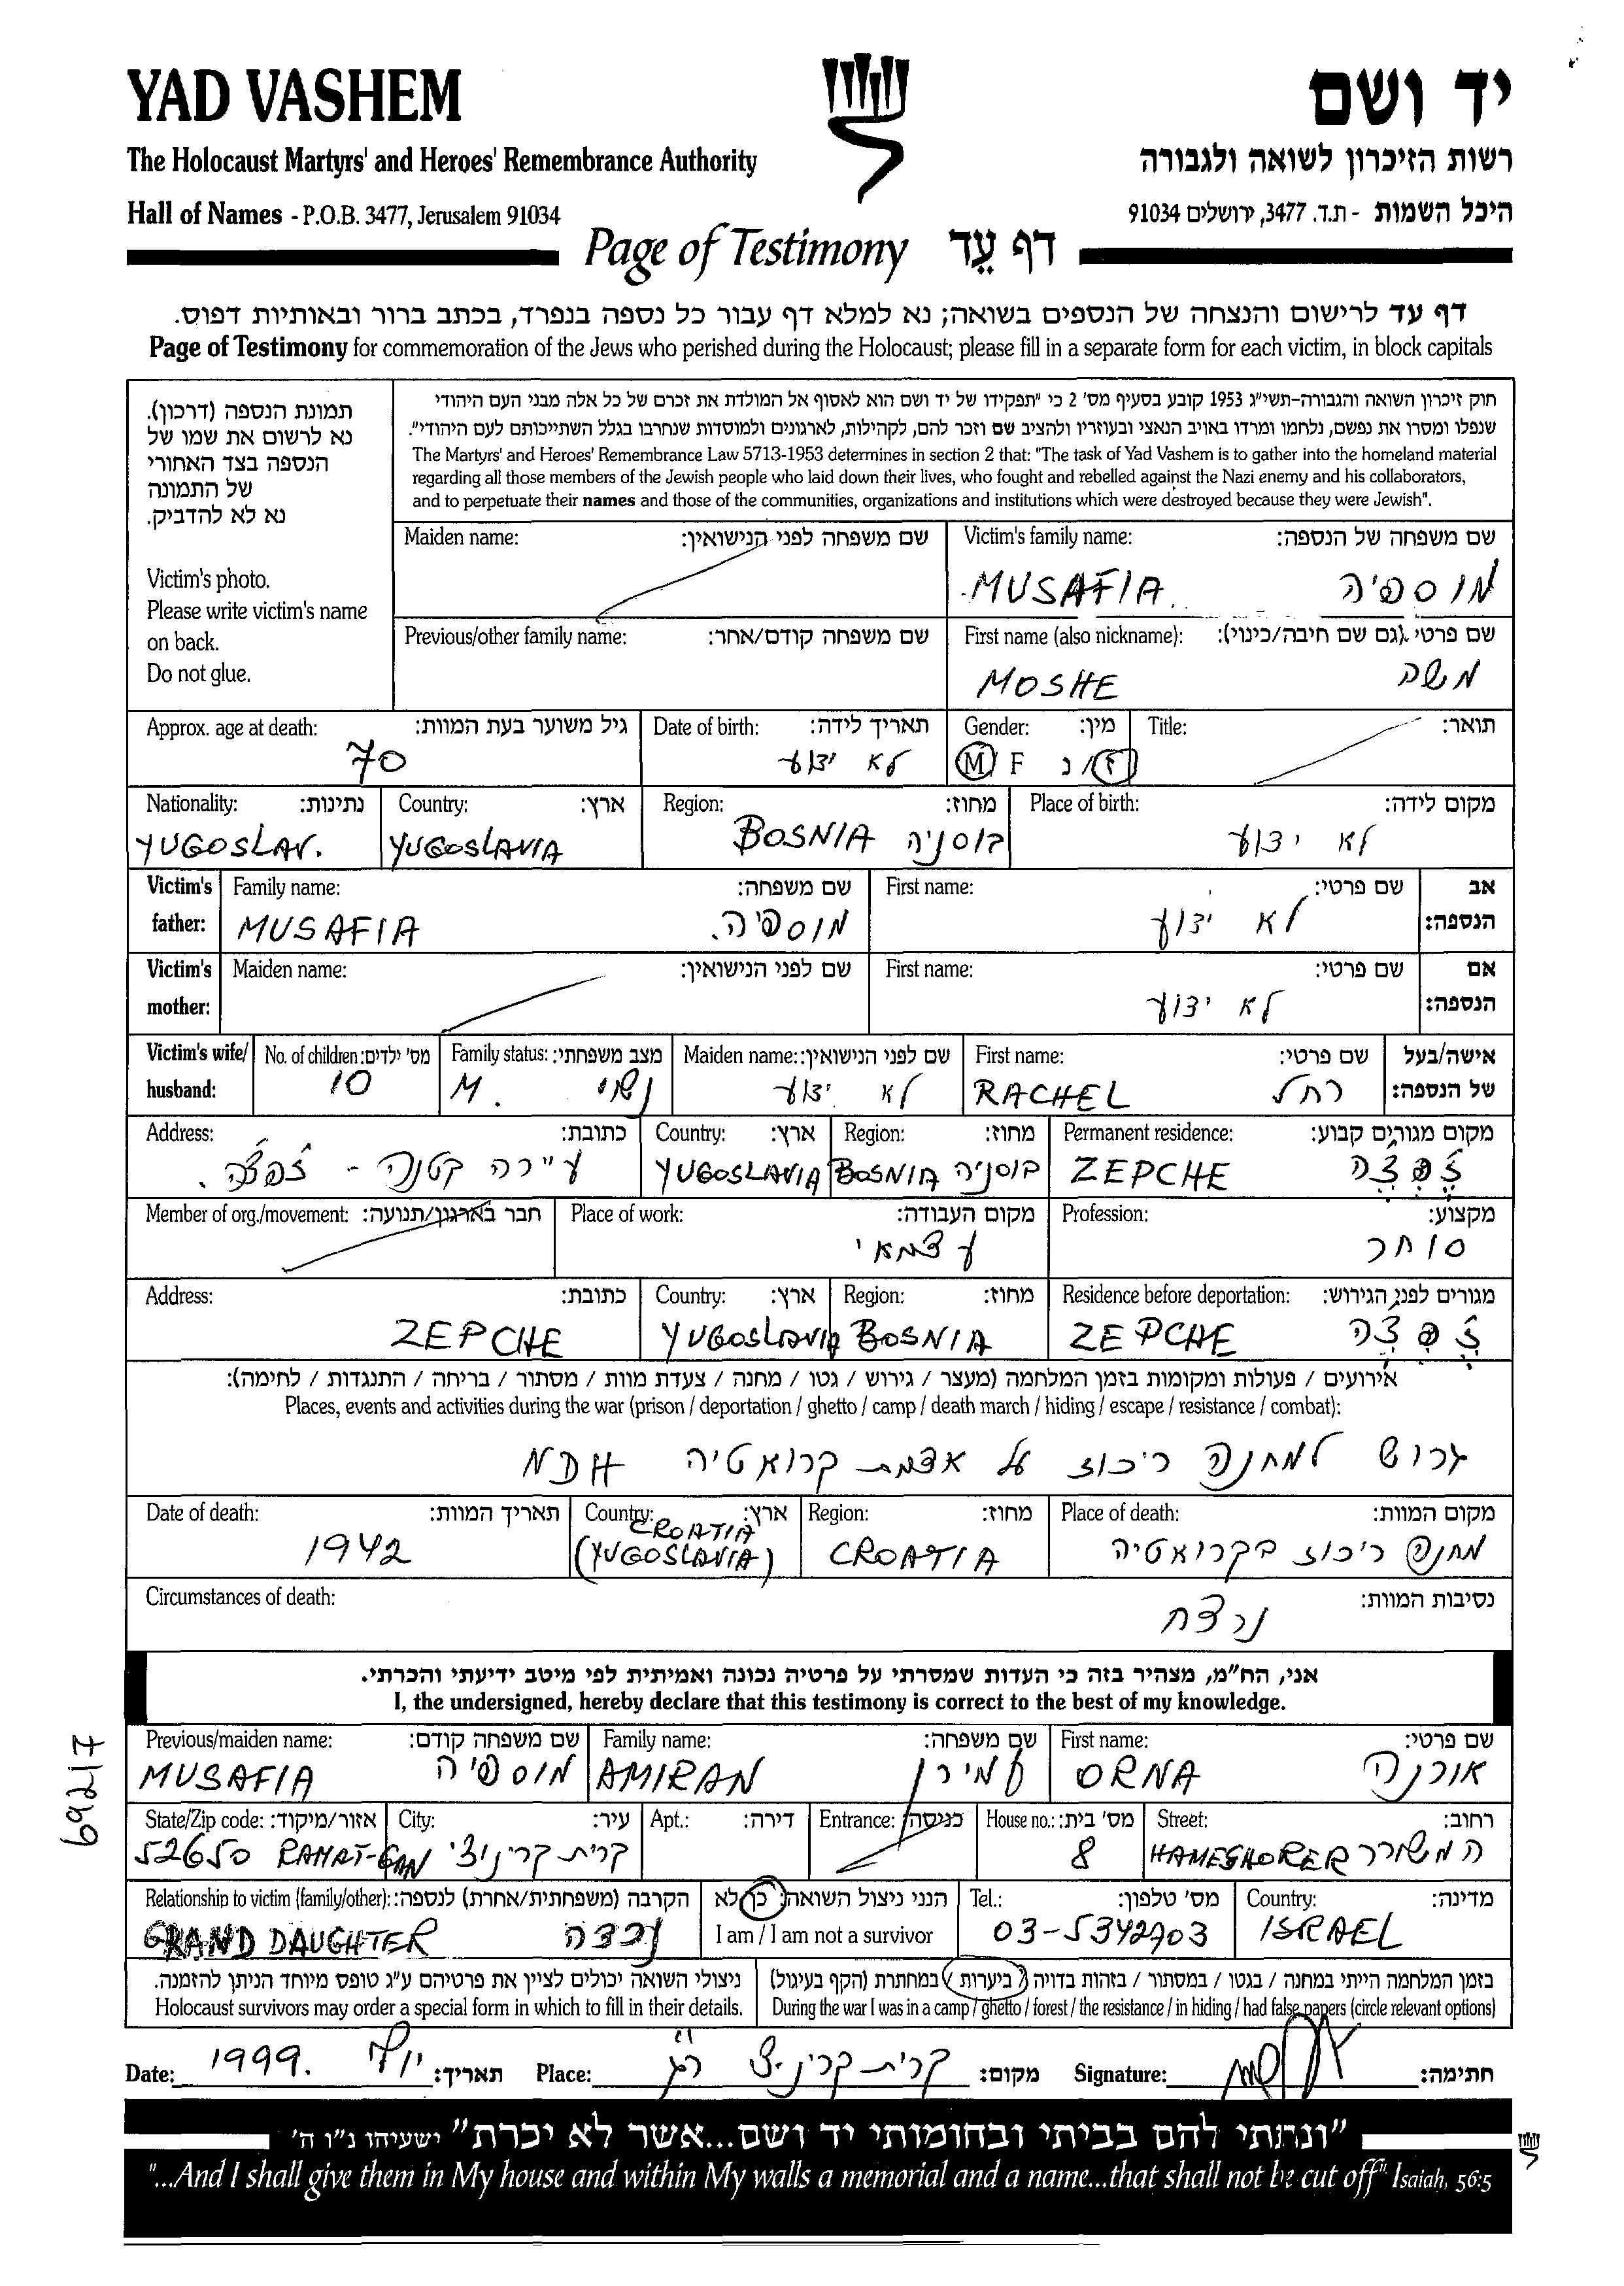 YAD VASHEM
יד ושם
The Holocaust Martyrs' and Heroes' Remembrance Authority
רשות הזיכרון לשואה ולגבורה
Hall of Names - P.O.B. 3477, Jerusalem 91034
היכל השמות - ת.ד. 3477, ירושלים 91034
Page of Testimony דף עֵד
דף עד לרישום והנצחה של הנספים בשואה; נא למלא דף עבור כל נספה בנפרד, בכתב ברור ובאותיות דפוס.
Page of Testimony for commemoration of the Jews who perished during the Holocaust; please fill in a separate form for each victim, in block capitals
תמונת הנספה (דרכון).
נא לרשום את שמו של
הנספה בצד האחורי
של התמונה
נא לא להדביק.
Victim's photo.
Please write victim's name
on back.
Do not glue.
חוק זיכרון השואה והגבורה-תשי"ג 1953 קובע בסעיף מס' 2 כי "תפקידו של יד ושם הוא לאסוף אל המולדת את זכרם של כל אלה מבני העם היהודי
שנפלו ומסרו את נפשם, נלחמו ומרדו באויב הנאצי ובעוזריו ולהציב שם וזכר להם, לקהילות, לארגונים ולמוסדות שנחרבו בגלל השתייכותם לעם היהודי".
The Martyrs' and Heroes' Remembrance Law 5713-1953 determines in section 2 that: "The task of Yad Vashem is to gather into the homeland material
regarding all those members of the Jewish people who laid down their lives, who fought and rebelled against the Nazi enemy and his collaborators,
and to perpetuate their names and those of the communities, organizations and institutions which were destroyed because they were Jewish".
Maiden name: שם משפחה לפני הנישואין:
Victim's family name: שם משפחה של הנספה:
MUSAFIA מוספיה
Previous/other family name: שם משפחה קודם/אחר:
First name (also nickname): שם פרטי (גם שם חיבה/כינוי):
MOSHE משה
Approx. age at death: גיל משוער בעת המוות:
70
Date of birth: תאריך לידה:
לא ידוע
Gender: מין:
M F ז/נ
Title: תואר:
Nationality: נתינות:
YUGOSLAV.
Country: ארץ:
YUGOSLAVIA
Region: מחוז:
BOSNIA בוסניה
Place of birth: מקום לידה:
לא ידוע
Victim's father:
Family name: שם משפחה:
MUSAFIA מוספיה.
First name: שם פרטי:
לא ידוע
אב הנספה:
Victim's mother:
Maiden name: שם לפני הנישואין:
First name: שם פרטי:
לא ידוע
אם הנספה:
Victim's wife/ husband:
No. of children: מס' ילדים:
10
Family status: מצב משפחתי:
M. נשוי
Maiden name: שם לפני הנישואין:
לא ידוע
First name: שם פרטי:
RACHEL רחל
אישה/בעל של הנספה:
Address: כתובת:
עיירה קטנה - זפצה.
Country: ארץ:
YUGOSLAVIA
Region: מחוז:
BOSNIA בוסניה
Permanent residence: מקום מגורים קבוע:
ZEPCHE זֶפְּצֶ'ה
Member of org./movement: חבר בארגון/תנועה:
Place of work: מקום העבודה:
עצמאי
Profession: מקצוע:
סוחר
Address: כתובת:
ZEPCHE
Country: ארץ:
YUGOSLAVIA
Region: מחוז:
BOSNIA
Residence before deportation: מגורים לפני הגירוש:
ZEPCHE זֶפְּצֶ'ה
אירועים / פעולות ומקומות בזמן המלחמה (מעצר / גירוש / גטו / מחנה / צעדת מוות / מסתור / בריחה / התנגדות / לחימה):
Places, events and activities during the war (prison / deportation / ghetto / camp / death march / hiding / escape / resistance / combat):
גרוש למחנה ריכוז על אדמת קרואטיה NDH
Date of death: תאריך המוות:
1942
Country: ארץ:
CROATIA
(YUGOSLAVIA)
Region: מחוז:
CROATIA
Place of death: מקום המוות:
מחנה ריכוז בקרואטיה
Circumstances of death: נסיבות המוות:
נרצח
אני, הח"מ, מצהיר בזה כי העדות שמסרתי על פרטיה נכונה ואמיתית לפי מיטב ידיעתי והכרתי.
I, the undersigned, hereby declare that this testimony is correct to the best of my knowledge.
69217
Previous/maiden name: שם משפחה קודם:
MUSAFIA מוספיה
Family name: שם משפחה:
AMIRAN עמירן
First name: שם פרטי:
ORNA אורנה
State/Zip code: אזור/מיקוד:
52650 RAMAT-GAN
City: עיר:
קרית קריניצי
Apt.: דירה:
Entrance: כניסה:
House no.: מס' בית:
8
Street: רחוב:
HAMESHORER המשורר
Relationship to victim (family/other): הקרבה (משפחתית/אחרת) לנספה:
GRAND DAUGHTER נכדה
הנני ניצול השואה: כן לא
I am / I am not a survivor
Tel.: מס' טלפון:
03-5342703
Country: מדינה:
ISRAEL
ניצולי השואה יכולים לציין את פרטיהם ע"ג טופס מיוחד הניתן להזמנה.
Holocaust survivors may order a special form in which to fill in their details.
בזמן המלחמה הייתי במחנה / בגטו / במסתור / בזהות בדויה / ביערות / במחתרת (הקף בעיגול)
During the war I was in a camp / ghetto / forest / the resistance / in hiding / had false papers (circle relevant options)
Date: 1999. יולי תאריך:
Place: קרית קריניצי ר"ג מקום:
Signature: חתימה:
"ונתתי להם בביתי ובחומותי יד ושם...אשר לא יכרת" ישעיהו נ"ו ה'
"...And I shall give them in My house and within My walls a memorial and a name...that shall not be cut off" Isaiah, 56:5